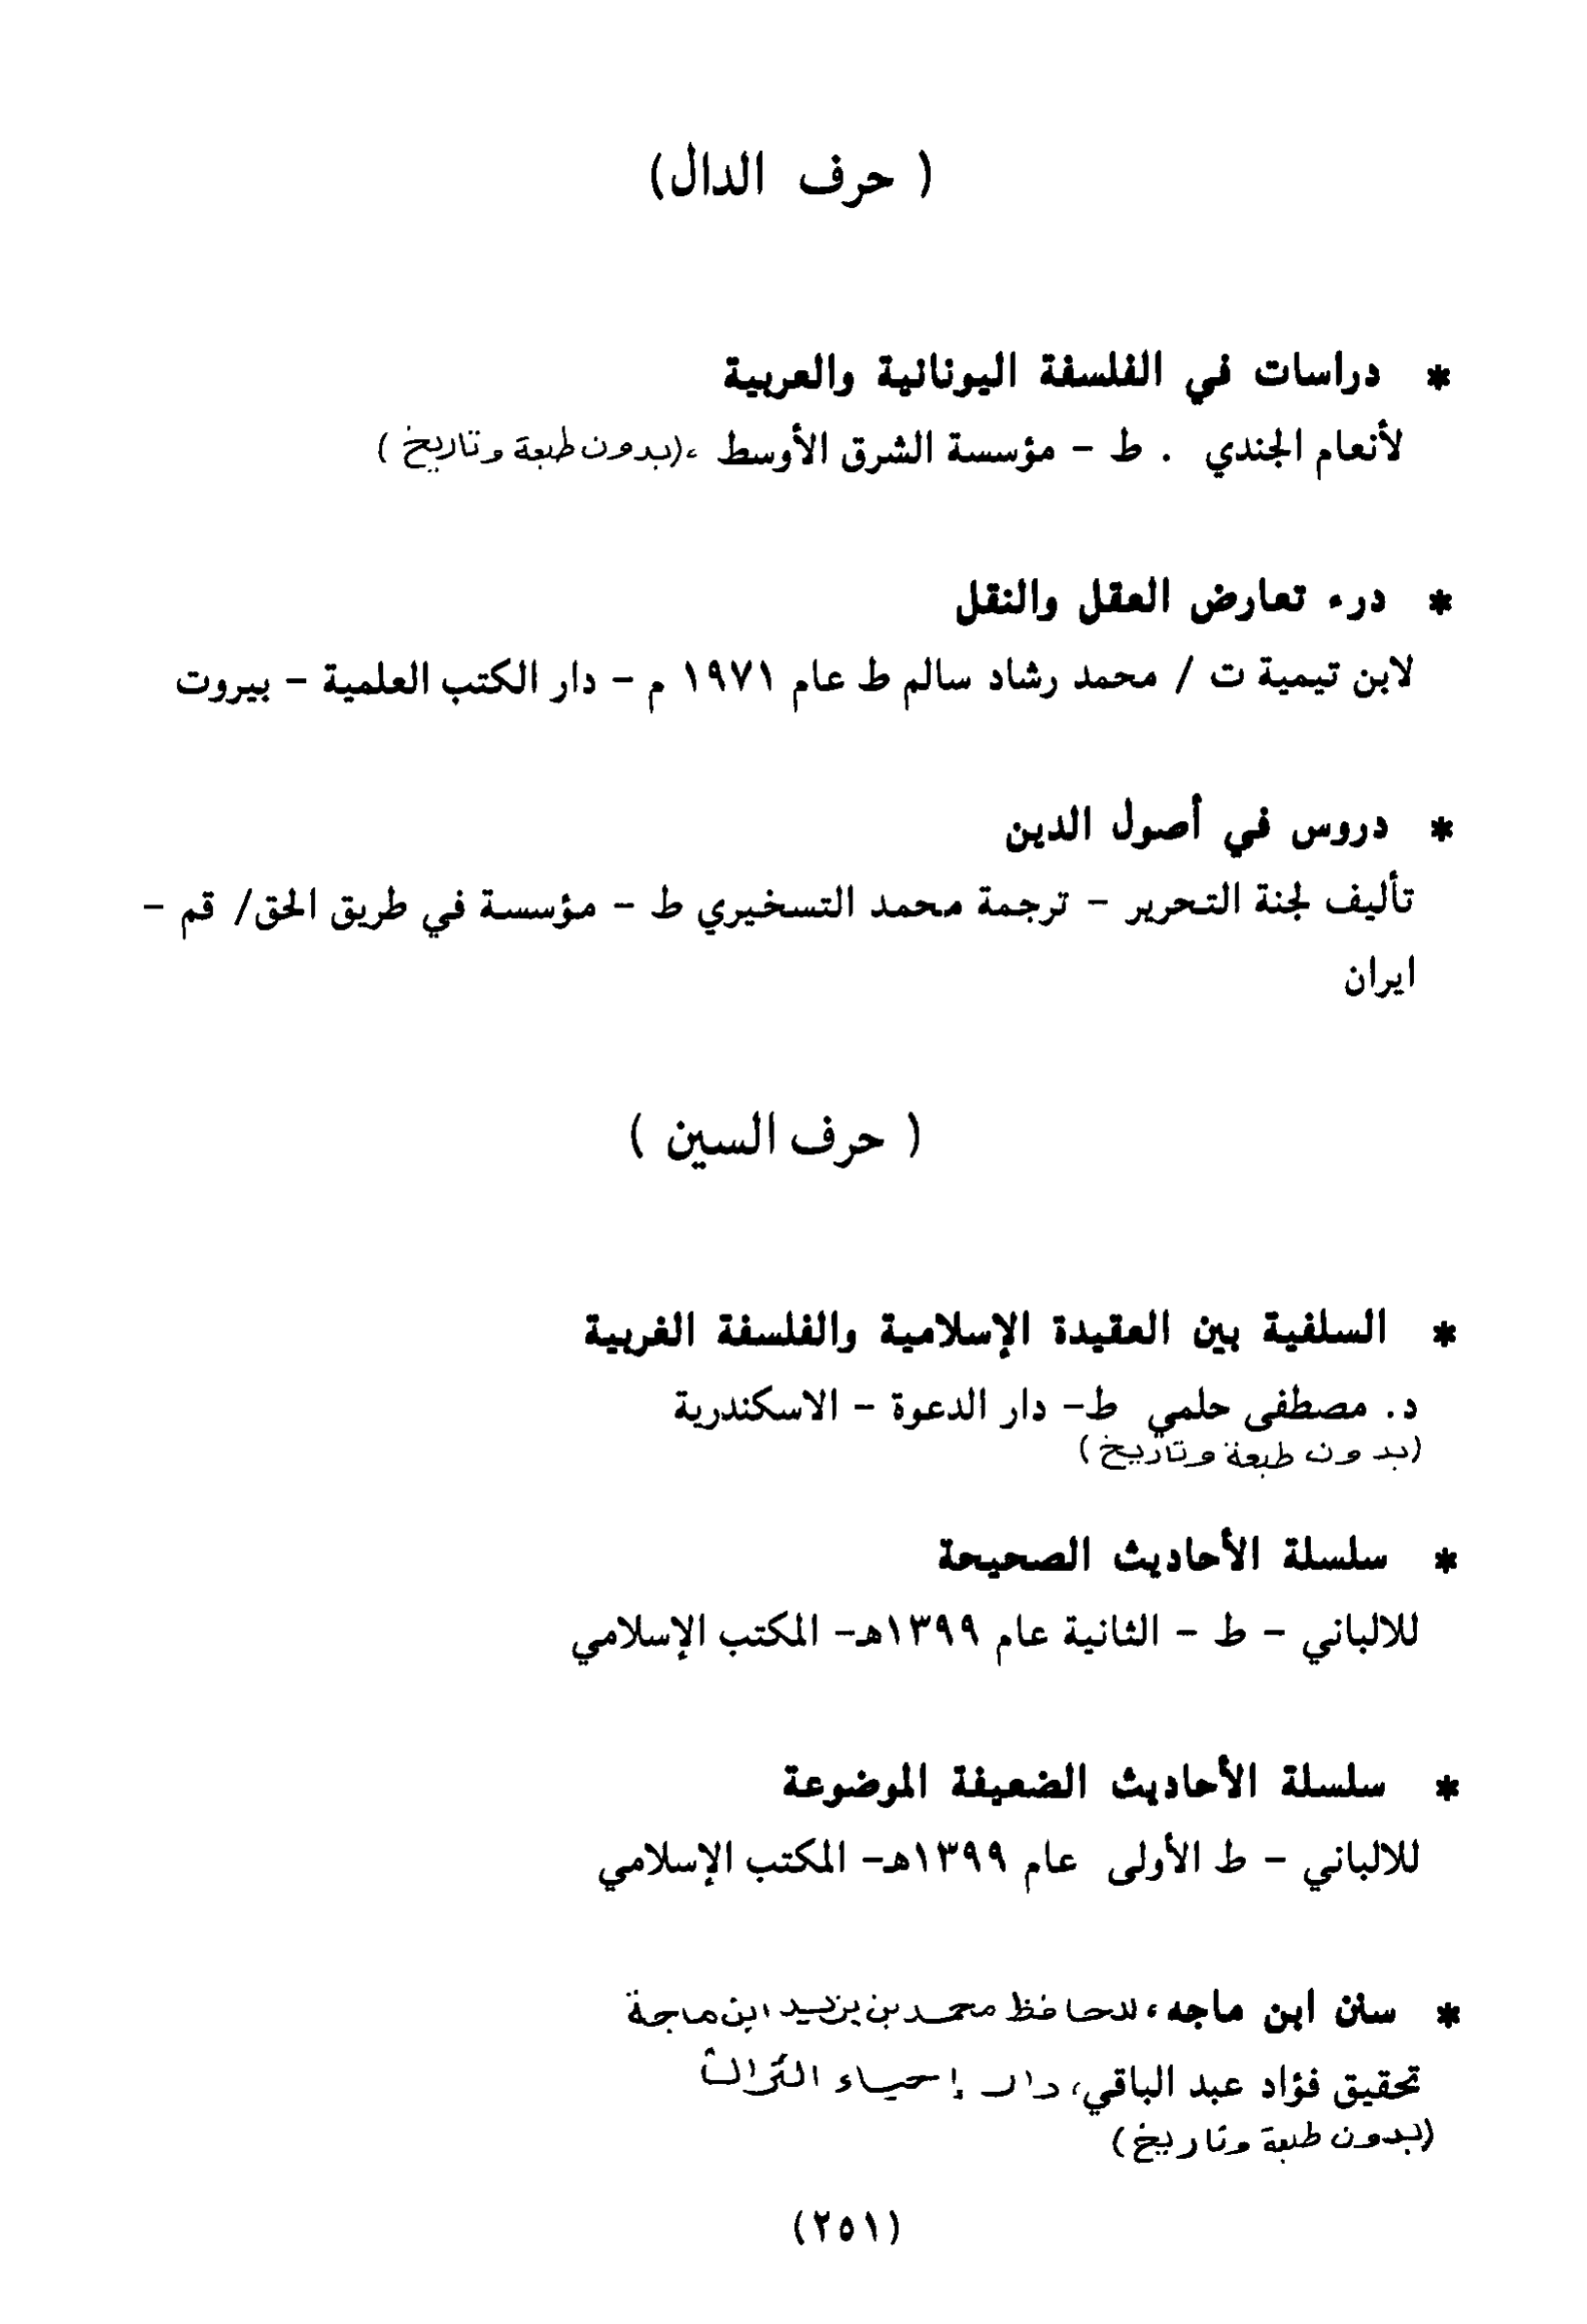 ( حرف الدال)
* دراسات في الفلسفة اليونانية والعربية
لأنعام الجندي . ط - مؤسسة الشرق الأوسط ، (بدون طبعة وتاريخ )
* درء تعارض العقل والنقل
لابن تيمية ت / محمد رشاد سالم ط عام ١٩٧١ م - دار الكتب العلمية - بيروت
* دروس في أصول الدين
تأليف لجنة التحرير - ترجمة محمد التسخيري ط - مؤسسة في طريق الحق/ قم -
ايران
( حرف السين )
* السلفية بين العقيدة الإسلامية والفلسفة الغربية
د. مصطفى حلمي ط- دار الدعوة - الاسكندرية
(بدون طبعة وتاريخ )
* سلسلة الأحاديث الصحيحة
للالباني - ط - الثانية عام ١٣٩٩هـ- المكتب الإسلامي
* سلسلة الأحاديث الضعيفة الموضوعة
للالباني - ط الأولى عام ١٣٩٩هـ- المكتب الإسلامي
* سنن ابن ماجه ، للحافظ محمد بن يزيد ابن ماجة
تحقيق فؤاد عبد الباقي، دار إحياء التراث
(بدون طبعة وتاريخ)
(٢٥١)